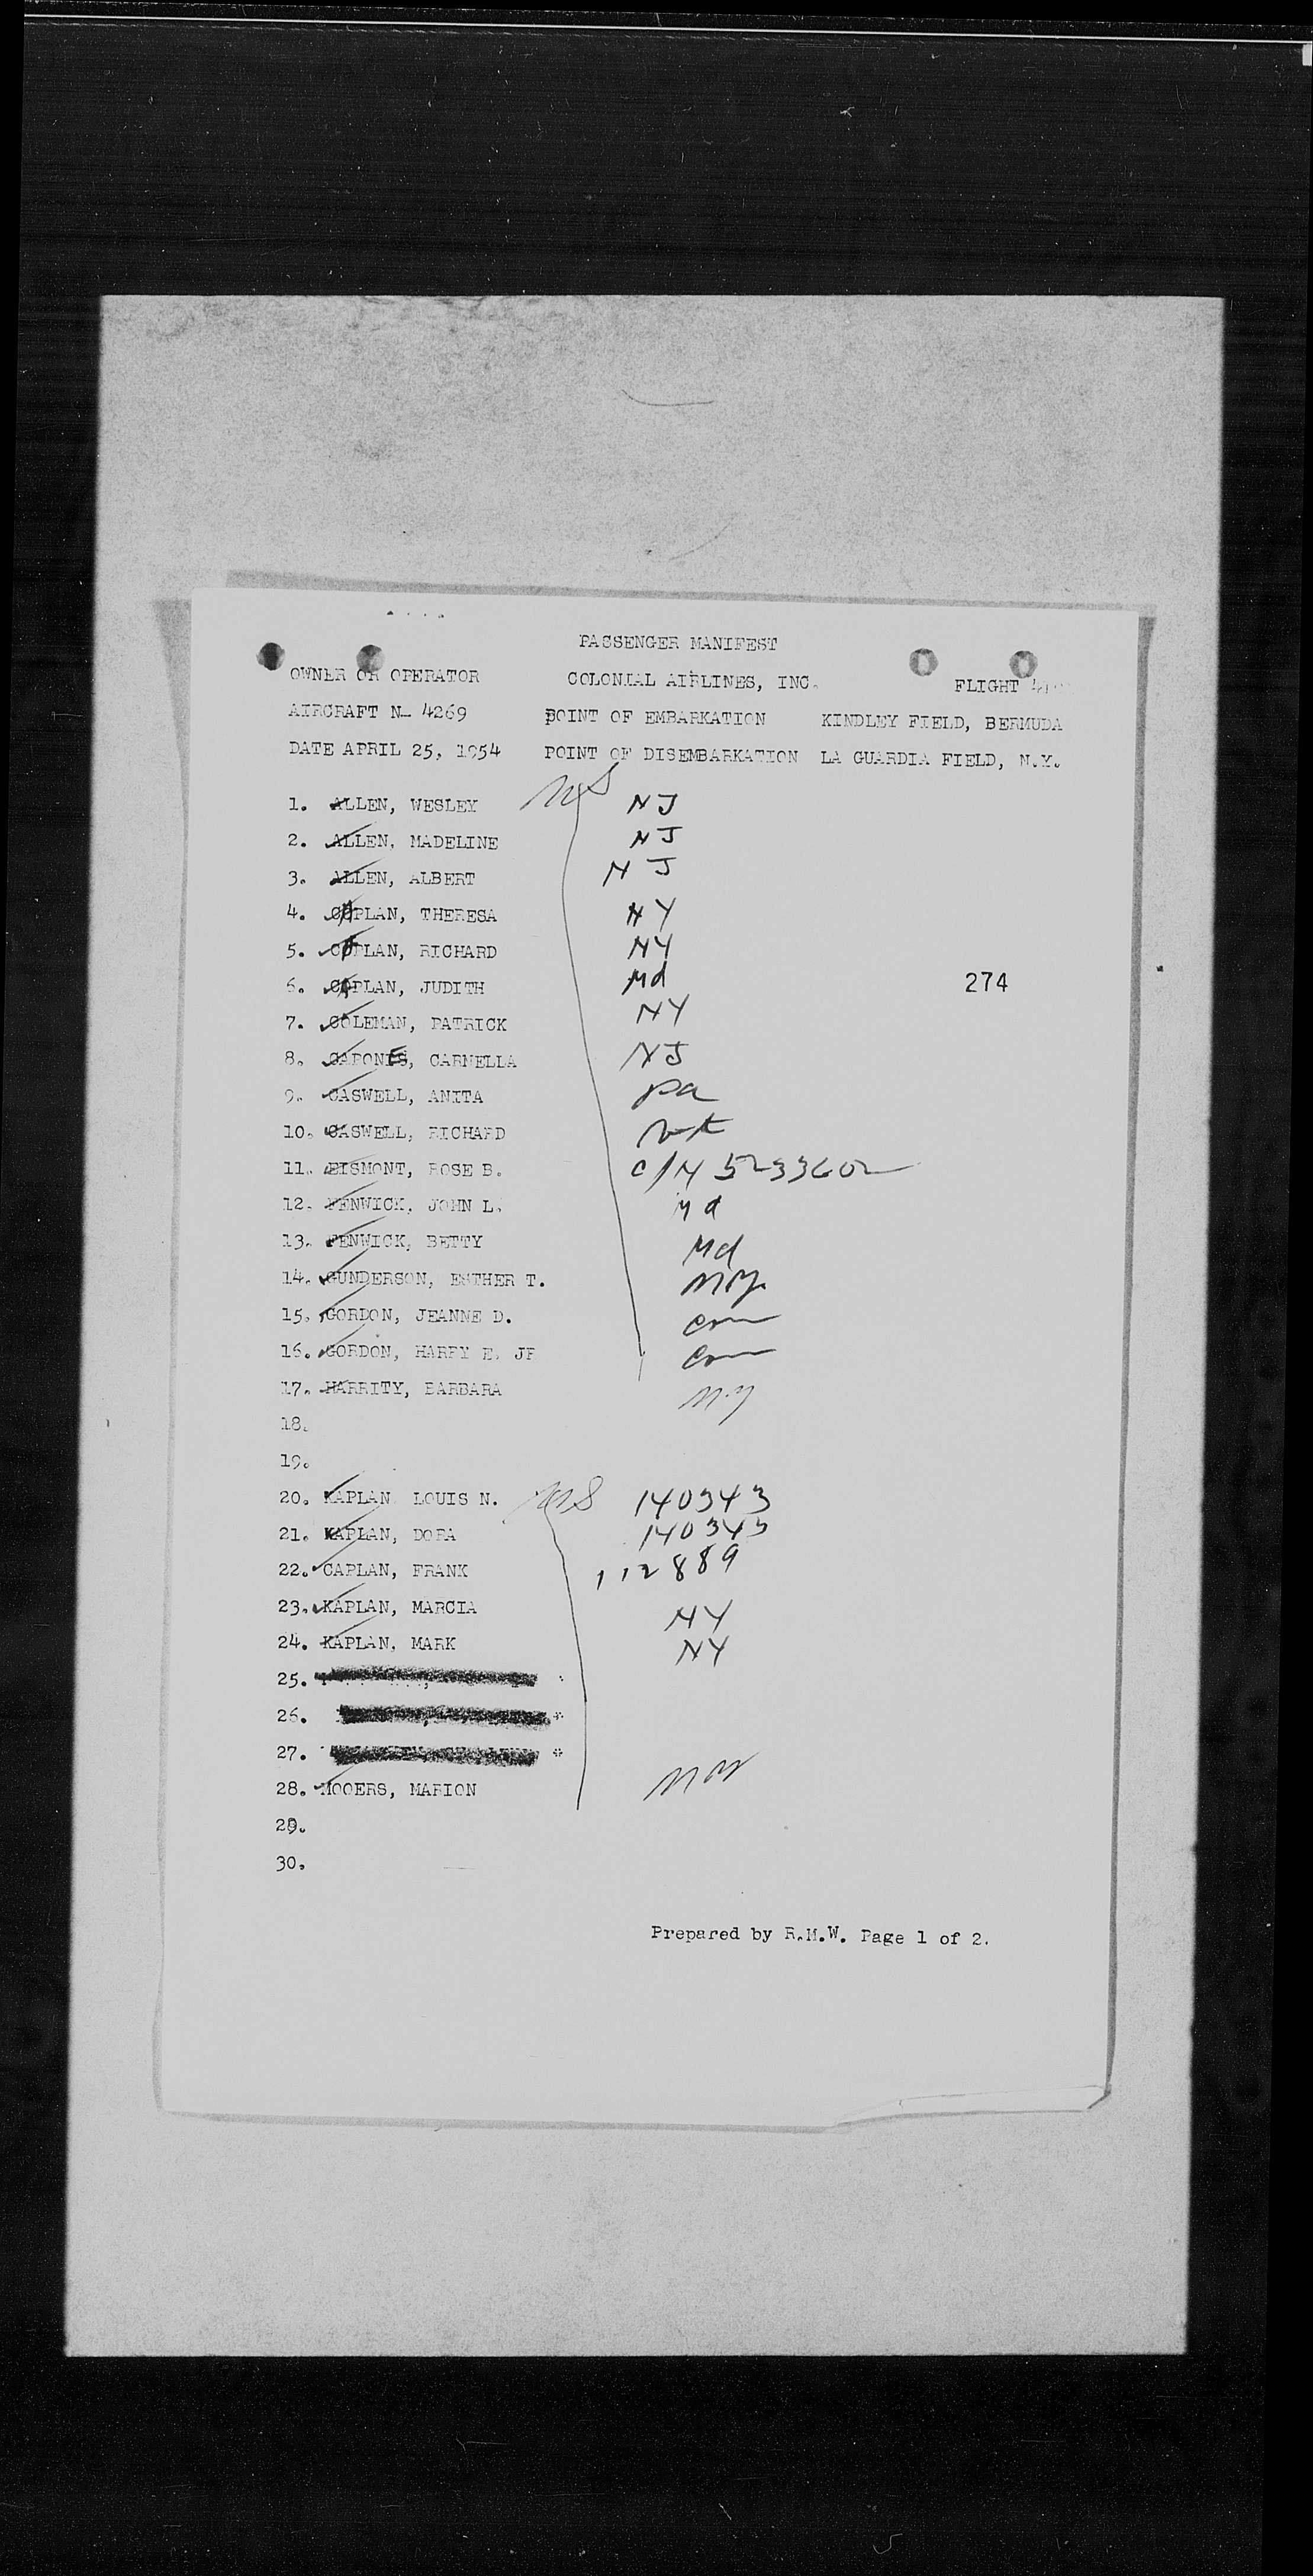 PASSENGER MANIFEST
OWNER OR OPERATOR COLONIAL AIRLINES, INC. FLIGHT
AIRCRAFT N- 4269 POINT OF EMBARKATION KINDLEY FIELD, BERMUDA
DATE APRIL 25, 1954 POINT OF DISEMBARKATION LA GUARDIA FIELD, N.Y.
1. ALLEN, WESLEY NJ
2. ALLEN, MADELINE NJ
3. ALLEN, ALBERT NJ
4. CAPLAN, THERESA NY
5. CAPLAN, RICHARD NY
6. CAPLAN, JUDITH Md 274
7. COLEMAN, PATRICK NY
8. CARNELLA NJ
9. CASWELL, ANITA Pa
10. CASWELL, RICHARD
11. EISMONT, ROSE B. C/N 5233602
12. FENWICK, JOHN L. Md
13. FENWICK, BETTY Md
14. GUNDERSON, ESTHER T.
15. GORDON, JEANNE D. Con
16. GORDON, HARRY E. JR Con
17. HARRITY, BARBARA N.Y
18.
19.
20. KAPLAN LOUIS N. 140343
21. KAPLAN, DORA 140343
22. CAPLAN, FRANK 112889
23. KAPLAN, MARCIA NY
24. KAPLAN, MARK NY
25.
26. *
27. *
28. MOOERS, MARION
29.
30.
Prepared by R.M.W. Page 1 of 2.